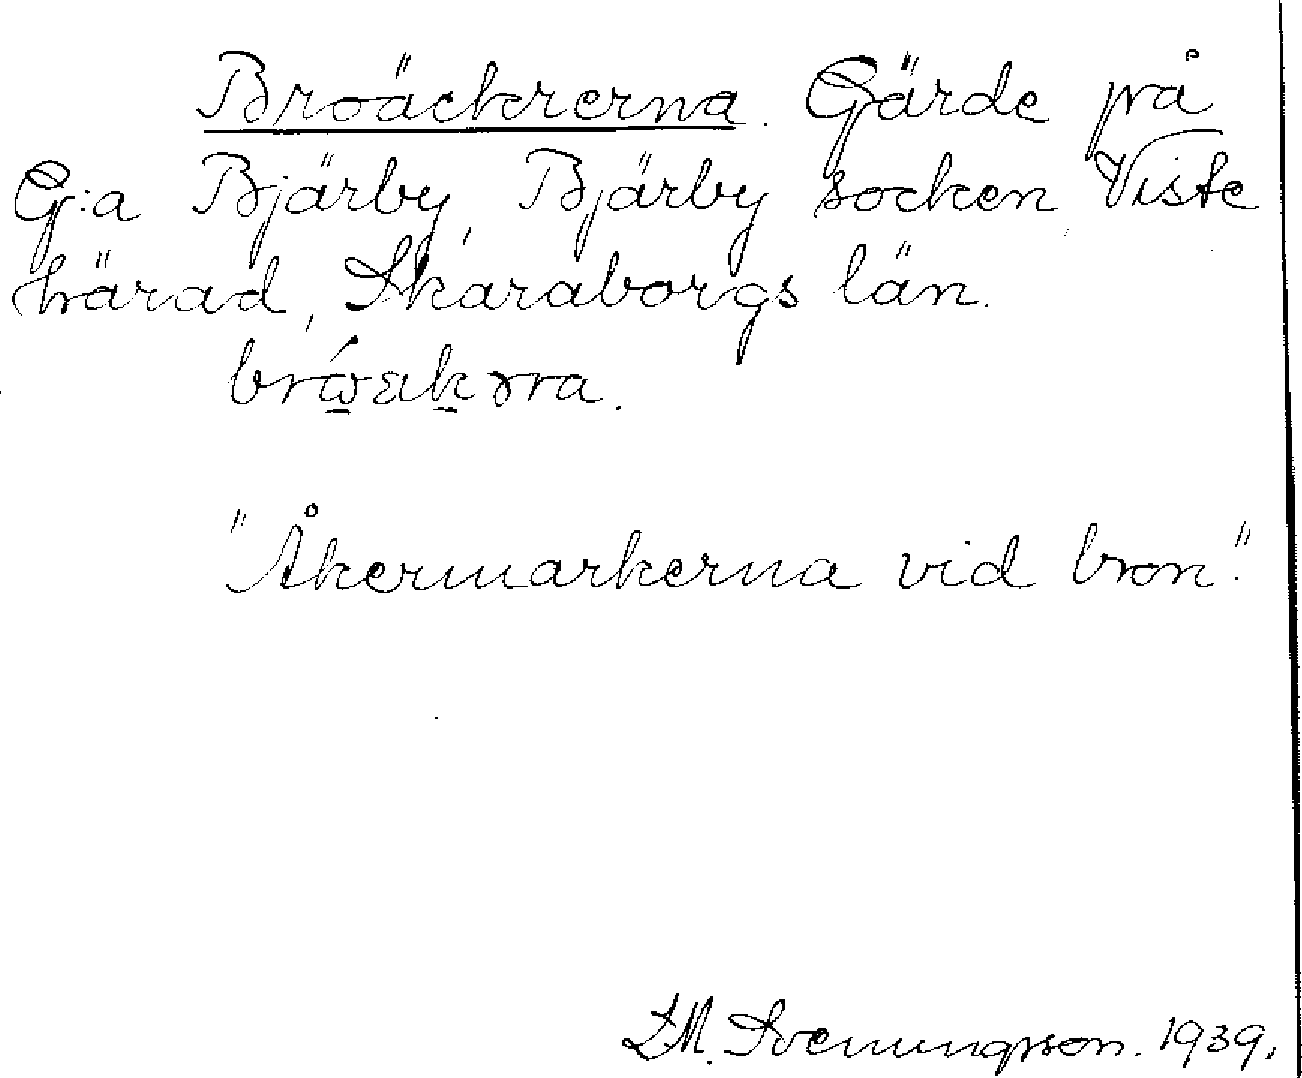 Broäckrerna. Gärde på
G:a Bjärby, Bjärby socken Viste
härad, Skaraborgs län.
"Åkermarkerna vid bron".
Svenungsson. 1939.